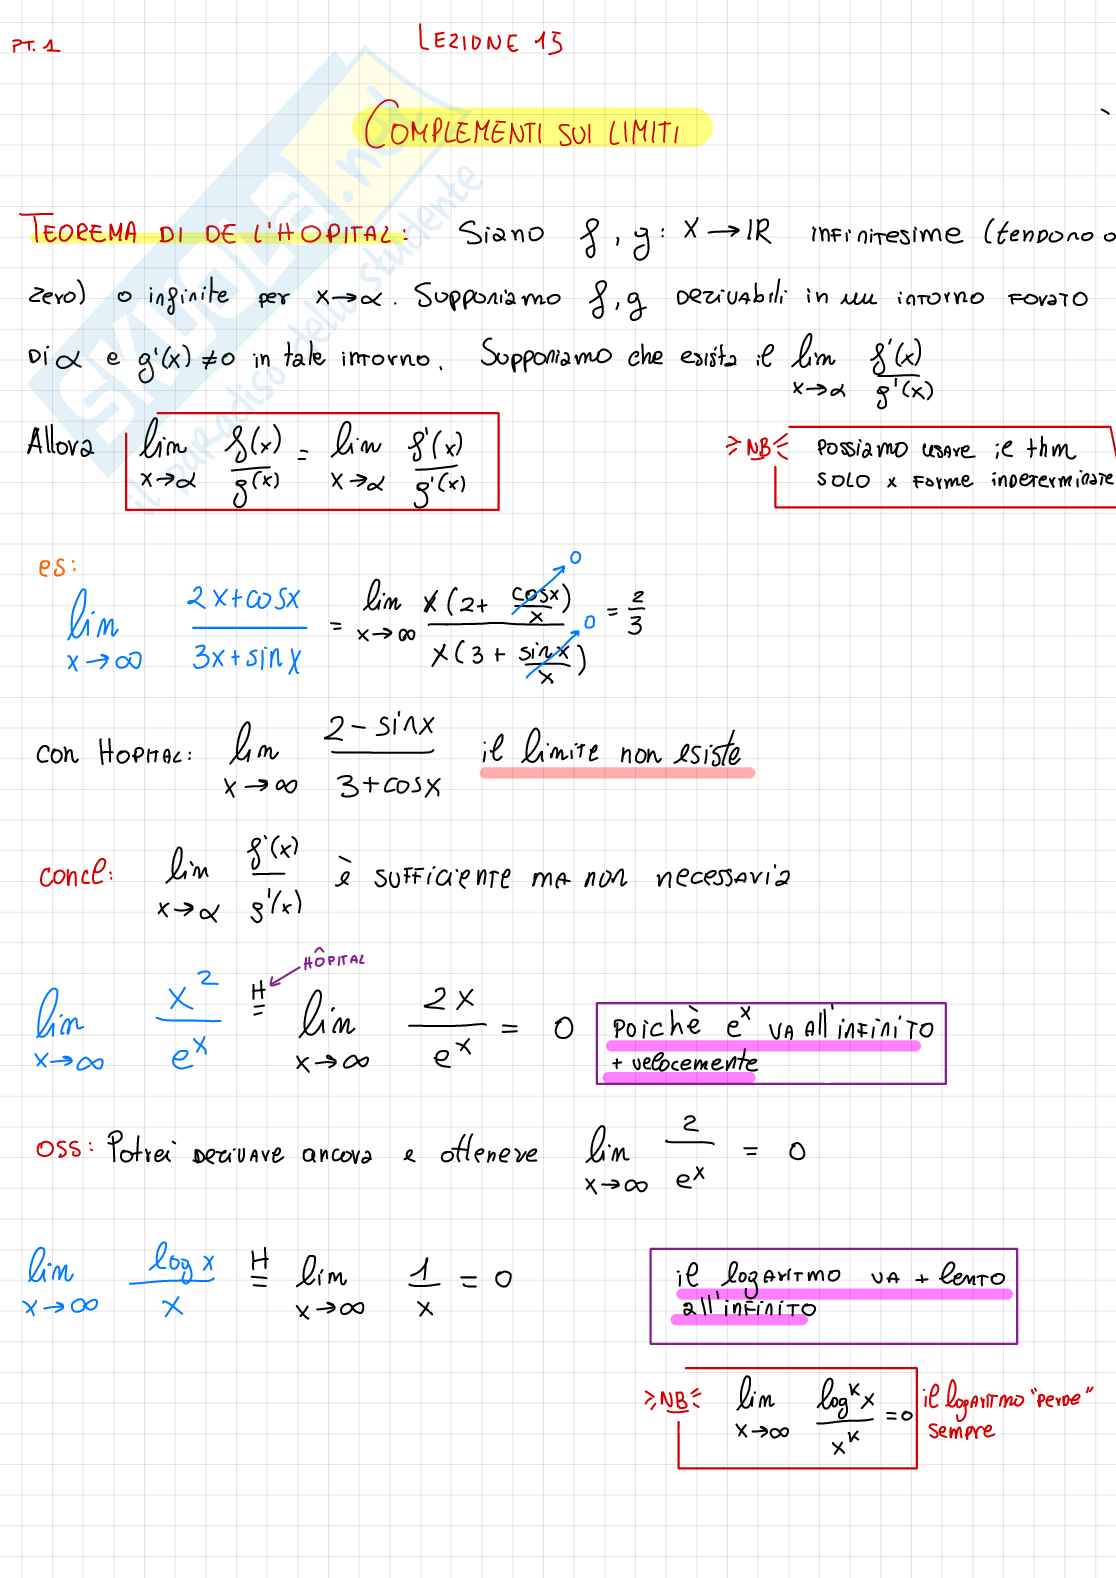 PT. 1
LEZIONE 15
COMPLEMENTI SUI LIMITI
TEOREMA DI DE L'HOPITAL: Siano f, g: X → IR infinitesime (tendono a
zero) o infinite per x→α. Supponiamo f, g derivabili in un intorno forato
di α e g'(x) ≠0 in tale intorno. Supponiamo che esista il lim x→α f'(x)/g'(x)
Allora lim x→α f(x)/g(x) = lim x→α f'(x)/g'(x)
NB possiamo usare il thm
solo x forme indeterminate
es:
lim x→∞ (2x+cosx)/(3x+sinx) = lim x→∞ x(2+ cosx/x)/x(3+ sinx/x) = 2/3
0
0
con Hopital: lim x→∞ (2-sinx)/(3+cosx) il limite non esiste
concl: lim x→α f'(x)/g'(x) è sufficiente ma non necessaria
HÔPITAL
lim x→∞ x²/eˣ H= lim x→∞ 2x/eˣ = 0 poichè eˣ va all'infinito
+ velocemente
oss: Potrei derivare ancora e ottenere lim x→∞ 2/eˣ = 0
lim x→∞ log x/x H= lim x→∞ 1/x = 0 il logaritmo va + lento
all'infinito
NB lim x→∞ logᴷx/xᴷ =0 il logaritmo "perde"
sempre
SKUOLA.net
il paradiso dello studente